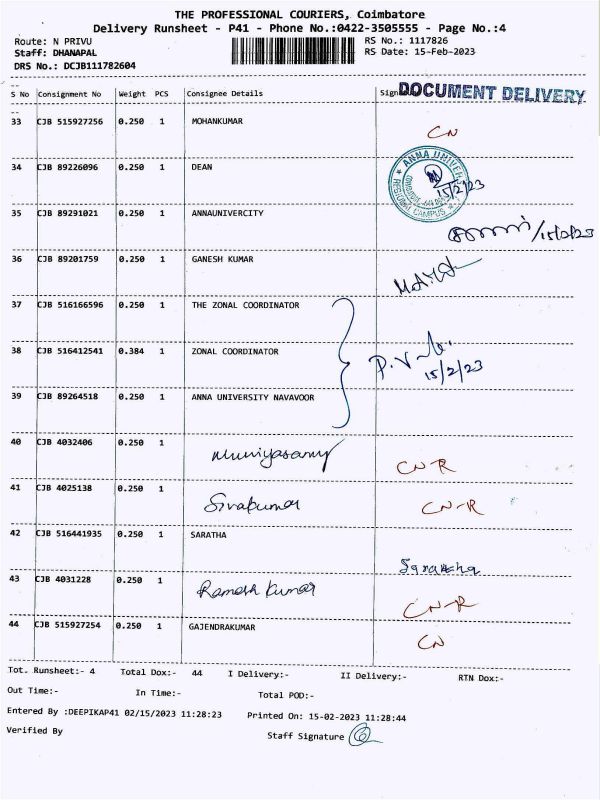 THE PROFESSIONAL COURIERS, Coimbatore
Delivery Runsheet - P41 - Phone No.:0422-3505555 - Page No.:4
Route: N PRIVU
RS No.: 1117826
Staff: DHANAPAL
RS Date: 15-Feb-2023
DRS No.: DCJB111782604
DOCUMENT DELIVERY
S No Consignment No Weight PCS Consignee Details
33 CJB 515927256 0.250 1 MOHANKUMAR CN
34 CJB 89226096 0.250 1 DEAN
ANNA UNIVER
REGIONAL CAMPUS
15/2/23
35 CJB 89291021 0.250 1 ANNAUNIVERCITY
15/2/23
36 CJB 89201759 0.250 1 GANESH KUMAR
37 CJB 516166596 0.250 1 THE ZONAL COORDINATOR
38 CJB 516412541 0.384 1 ZONAL COORDINATOR
15/2/23
39 CJB 89264518 0.250 1 ANNA UNIVERSITY NAVAVOOR
40 CJB 4032406 0.250 1 Muniyasamy CN-R
41 CJB 4025138 0.250 1 Sivakumar CN-R
42 CJB 516441935 0.250 1 SARATHA
43 CJB 4031228 0.250 1 Ramesh Kumar CN-R
44 CJB 515927254 0.250 1 GAJENDRAKUMAR CN
Tot. Runsheet:- 4 Total Dox:- 44 I Delivery:- II Delivery:- RTN Dox:-
Out Time:- In Time:- Total POD:-
Entered By :DEEPIKAP41 02/15/2023 11:28:23 Printed On: 15-02-2023 11:28:44
Verified By Staff Signature